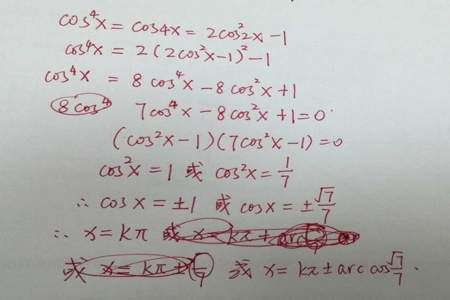 cos⁴x = cos4x = 2cos²2x-1
cos⁴x = 2(2cos²x-1)²-1
cos⁴x = 8cos⁴x-8cos²x+1
8cos⁴ 7cos⁴x-8cos²x+1=0
(cos²x-1)(7cos²x-1)=0
cos²x=1 或 cos²x=1/7
∴ cosx=±1 或 cosx=±√7/7
∴ x=kπ 或 x=kπ+arc
或 x=kπ± 或 x=kπ±arccos√7/7.